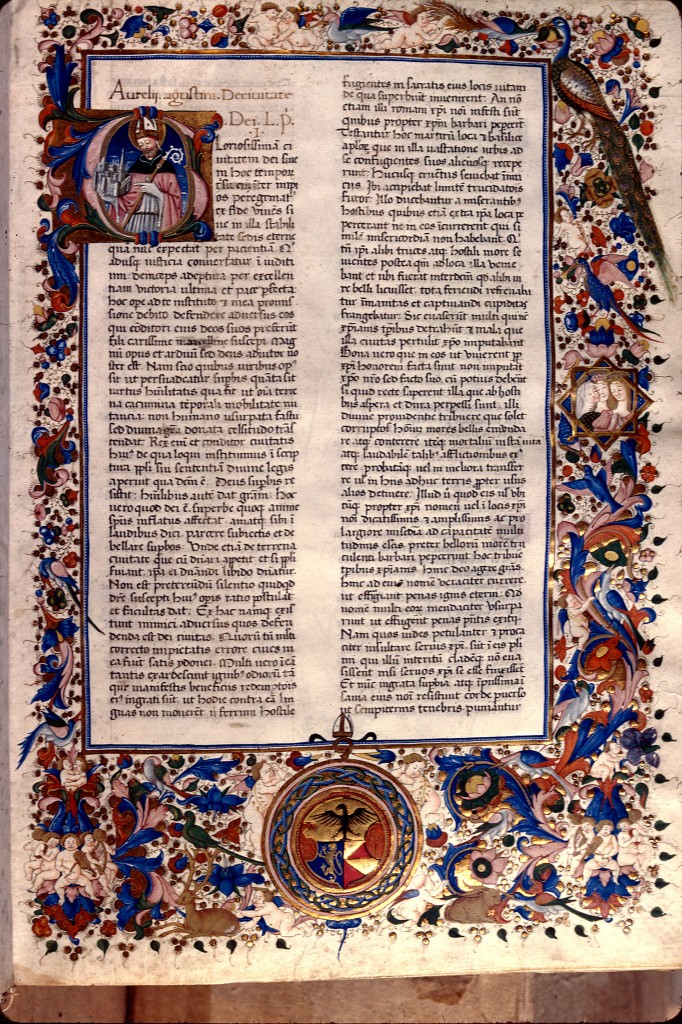 Aurelij. agustini. Deciuitate
Dei. L. p̄.
.I.
Gloriosissimã ci
uitatem dei siue
in hoc tempor
cursu cũ inter impi
os peregrinat᷑
ex fide viuẽs si
ue in illa stabili
tate sedis eterne
quã nũc expectat per pacientiã. Q
adusq iusticia conuertatur ĩ iuditi
um. deinceps adeptura per excellen
tiam victoria ultima et pace p̱fecta
hoc ope ad te instituto ⁊ mea promis
sione debito defendere aduersus eos
qui cõditori eius deos suos preferũt
fili carissime marcelline suscepi. Mag
nũ opus et arduũ sed deus adiutor no
ster est. Nam scio quibus uiribus op᷑
sit ut persuadeatur supbis quãta sit
uirtus hũilitatis qua fit ut oĩa terre
na cacumina tẽporali mobilitate nu
tantia non humano usurpata fastu
sed diuina gr̃a donata celsitudo trãs
cendat. Rex enĩ et conditor ciuitatis
huiꝰ de qua loqui instituimus ĩ scrip
tura ppli sui sententiã diuine legis
aperuit qua dcm̃ ẽ. Deus supbis re
sistit: hũilibus autẽ dat grãm. hoc
uero quod dei ẽ. superbe quoqꝫ anime
spũs inflatus affectat. amatqꝫ sibi ĩ
laudibus dici. parcere subiectis et de
bellare supbos. Vnde etiã de terrena
ciuitate que cũ dñari appetit et si ppli
seruiant. ip̃a ei dñandi libido dñatur.
Non est pretereundũ silentio quidqd
dr̃e suscepti huiꝰ opis ratio postulat
et facultas dat. Ex hac namqꝫ exis
tunt inimici aduersus quos defen
denda est dei ciuitas. Quorũ tñ multi
correcto impietatis errore ciues in
ea fiũt satis ydonei. Multi uero ĩ eã
tantis exardescũnt ignibꝰ odiorũ tã
qꝫ manifestis beneficijs redemptoris
eiꝰ ingrati sũt. ut hodie contra eã lin
guas non mouerẽt. nisi ferrum hostile
fugientes in sacratis eius locis uitam
de qua superbiũt inuenirent. An nõ
etiam illi romani xp̃i noĩ infesti sũt
quibus propter xp̃m barbari peperc̃t
Testantur hoc martirũ loca ⁊ basilice
aplõꝝ que in illa uastatione urbis ad
se confugientes suos alienosqꝫ recepe
runt. Hucusqꝫ cruẽtus seuiebat inimi
cus. Ibi accipiebat limitẽ trucidatoris
furor. Illo ducebantur a miserantibꝰ
hostibus quibus etiã extra ip̃a loca p
percerant ne in eos incurrerent qui si
milẽ misericordiã non habebant. Q
tñ ip̃i alibi truces atqꝫ hostili more se
uientes posteaq̃m ad loca illa uenie
bant et ubi fuerat interdictũ qd alibi iu
re belli licuisset. tota feriendi refrenaba
tur ĩmanitas et captiuandi cupiditas
frangebatur. Sic euaserũt multi qui nũc
xp̃ianis tp̃ribus detrahũt ⁊ mala que
illa ciuitas pertulit xp̃o imputabant
Bona uero que in eos ut uiuerent pp̃
xp̃i honorem facta sunt non imputãt
xp̃o nr̃o sed facto suo. cũ potius deberẽt
si quid recte saperent illa que ab hosti
bus aspera et dura perpessi sunt. illi
diuine prouidentie tribuere que solet
corruptos hoĩuꝫ mores bellis emenda
re atqꝫ conterere atqꝫ mortaliũ iustã uitã
atqꝫ laudabilẽ talibꝰ afflictionibus ex
cere. probatãqꝫ uel in meliora transfer
re ul in hijs adhuc terris ꝓpter usus
alios detinere. Illud ũ quod eis ul ubi
cũqꝫ propter xp̃i nomen uel ĩ locis xp̃i
noĩ dicatissimis ⁊ amplissimis ac pro
largiore miscdia ad capacitatẽ multi
tudinis elctis. preter bellorũ morẽ tru
culenti barbari pepercrũt hoc tribue
tp̃ribus xp̃ianis. hinc deo agere grãs.
hinc ad eius nomẽ ueraciter currere.
ut effugiant penas ignis eterni. Qd
nomẽ multi eoꝝ mendaciter usurpa
runt ut effugerent penas pñtis exitij.
Nam quos uides petulanter ⁊ proca
citer insultare seruis xp̃i. sũt ĩ eis pli
mi qui illũ interitũ cladẽqꝫ nõ eua
sissent nisi seruos xp̃i se esse finxissent
Et nũc ingrata supbia atqꝫ ĩpijssima ĩ
sania eius noĩ resistunt corde puerso
ut sempiternis tenebris puniantur